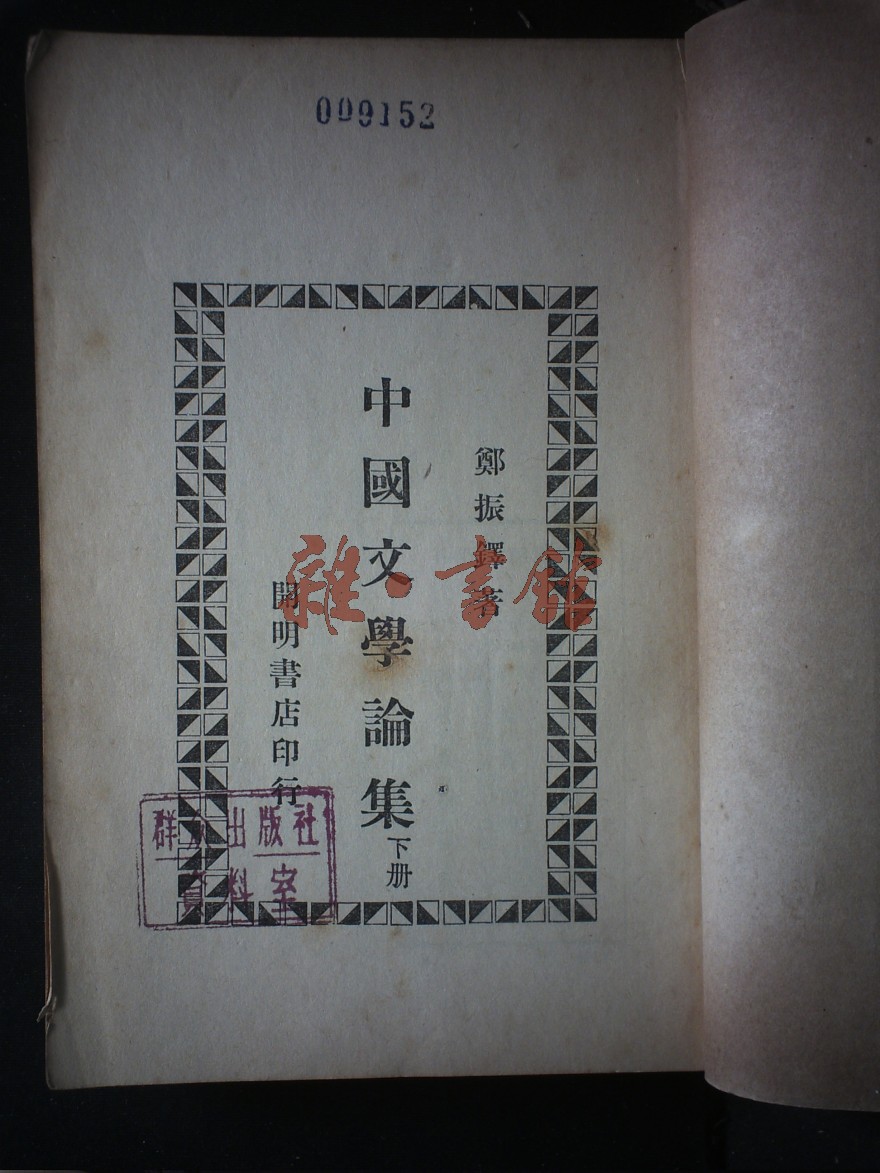 009152
鄭振鐸著
中國文學論集下册
開明書店印行
雜·書館
群众出版社
資料室